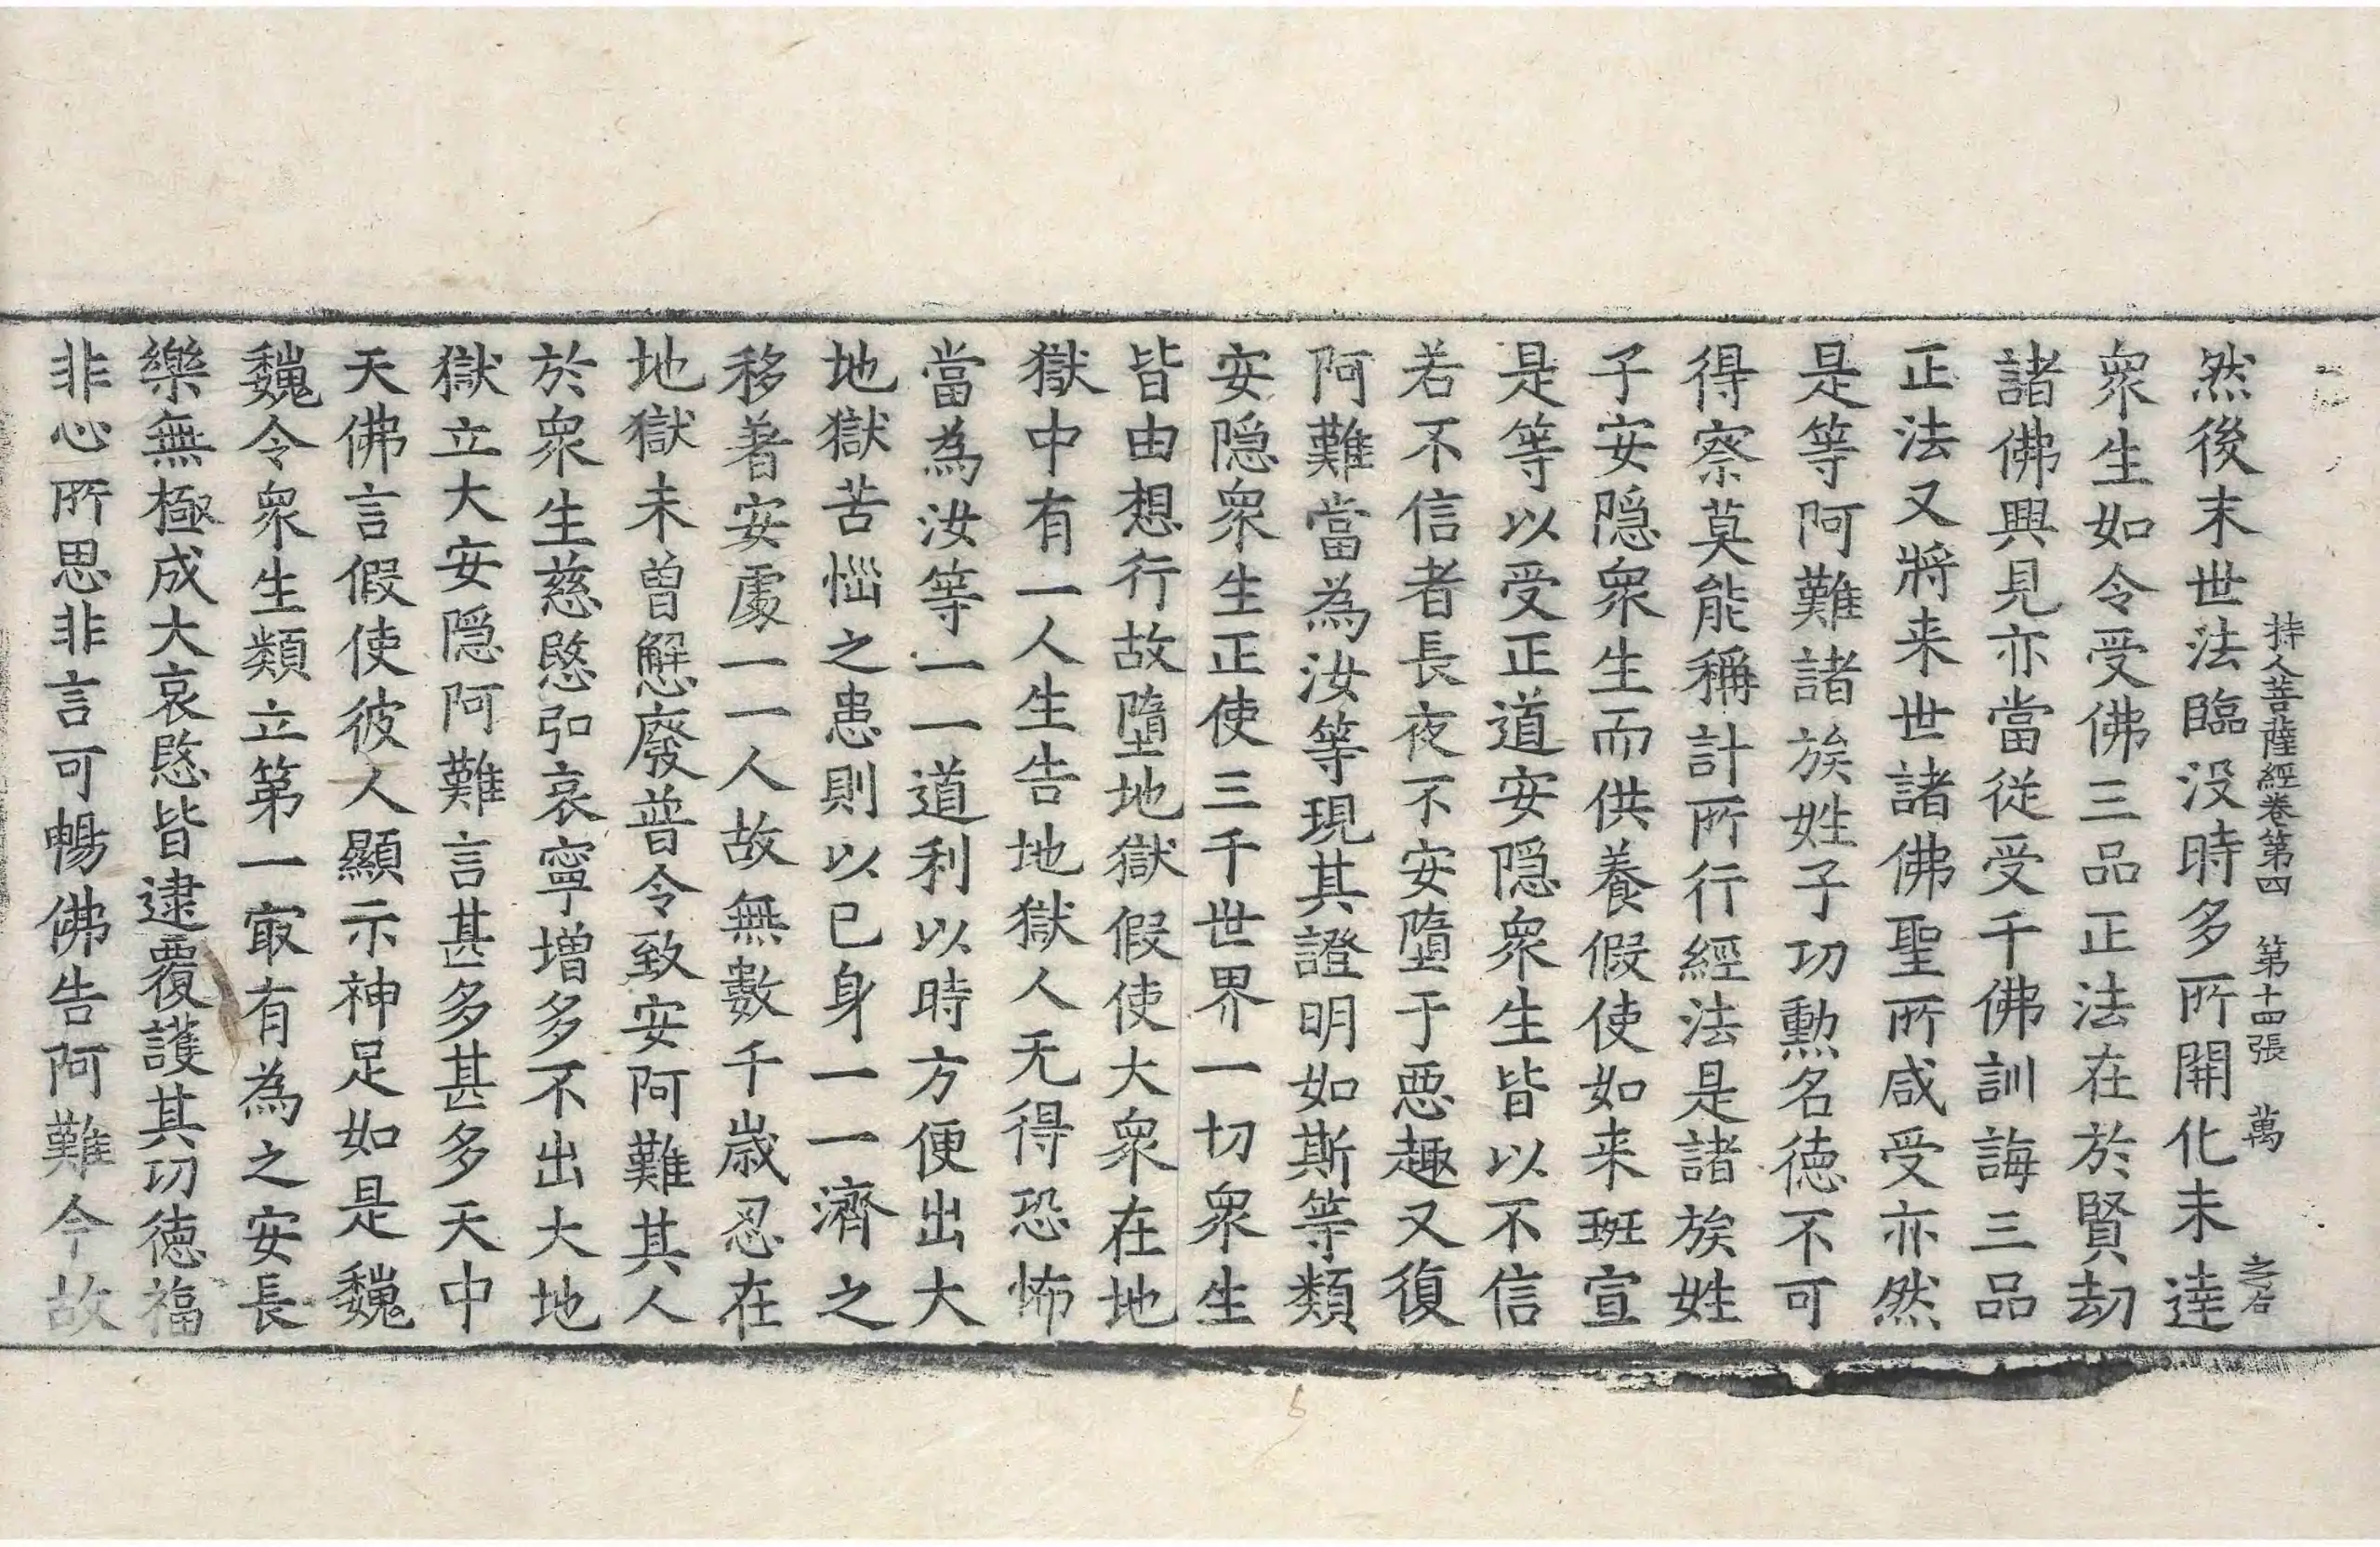 持人菩薩經卷第四 第十四張 萬
然後末世法臨没時多所開化未達
衆生如令受佛三品正法在於賢劫
諸佛興見亦當從受千佛訓誨三品
正法又將来世諸佛聖所咸受亦然
是等阿難諸族姓子功勲名徳不可
得察莫能稱計所行經法是諸族姓
子安隠衆生而供養假使如来班宣
是等以受正道安隠衆生皆以不信
若不信者長夜不安墮于惡趣又復
阿難當為汝等現其證明如斯等類
安隠衆生正使三千世界一切衆生
皆由想行故墮地獄假使大衆在地
獄中有一人生告地獄人无得恐怖
當為汝等一一道利以時方便出大
地獄苦惱之患則以已身一一濟之
移著安處一一人故無數千歳忍在
地獄未曽懈廢普令致安阿難其人
於衆生慈愍弘哀寧増多不出大地
獄立大安隠阿難言甚多甚多天中
天佛言假使彼人顯示神足如是巍
巍令衆生類立第一㝡有為之安長
樂無極成大哀愍皆逮覆護其功徳福
非心所思非言可暢佛告阿難今故